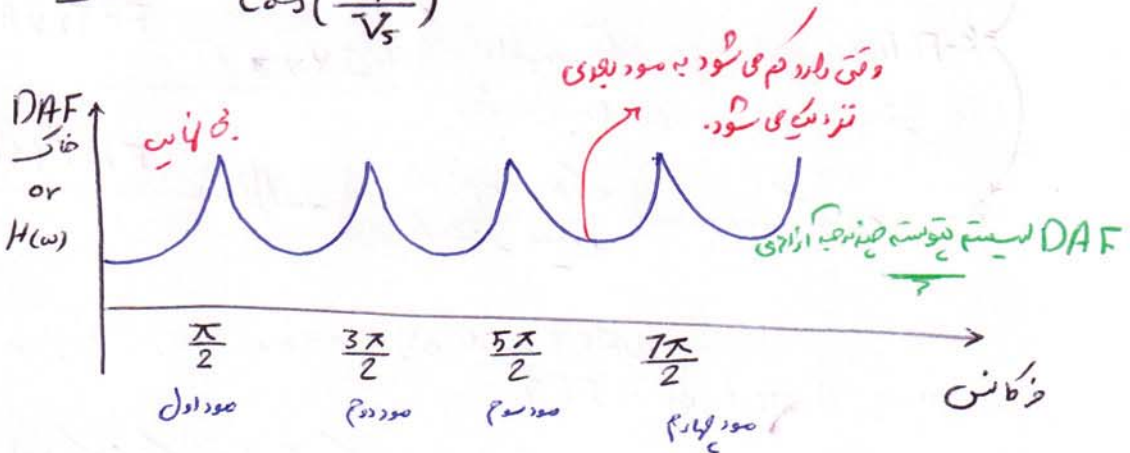 Cos(
V₅
)
وقتی دارد کم می شود به مود بعدی
نزدیک می شود.
DAF
خاک
or
H(ω)
بی نهایت
DAF سیستم پیوسته چند درجه آزادی
π/2
3π/2
5π/2
7π/2
فرکانس
مود اول
مود دوم
مود سوم
مود چهارم